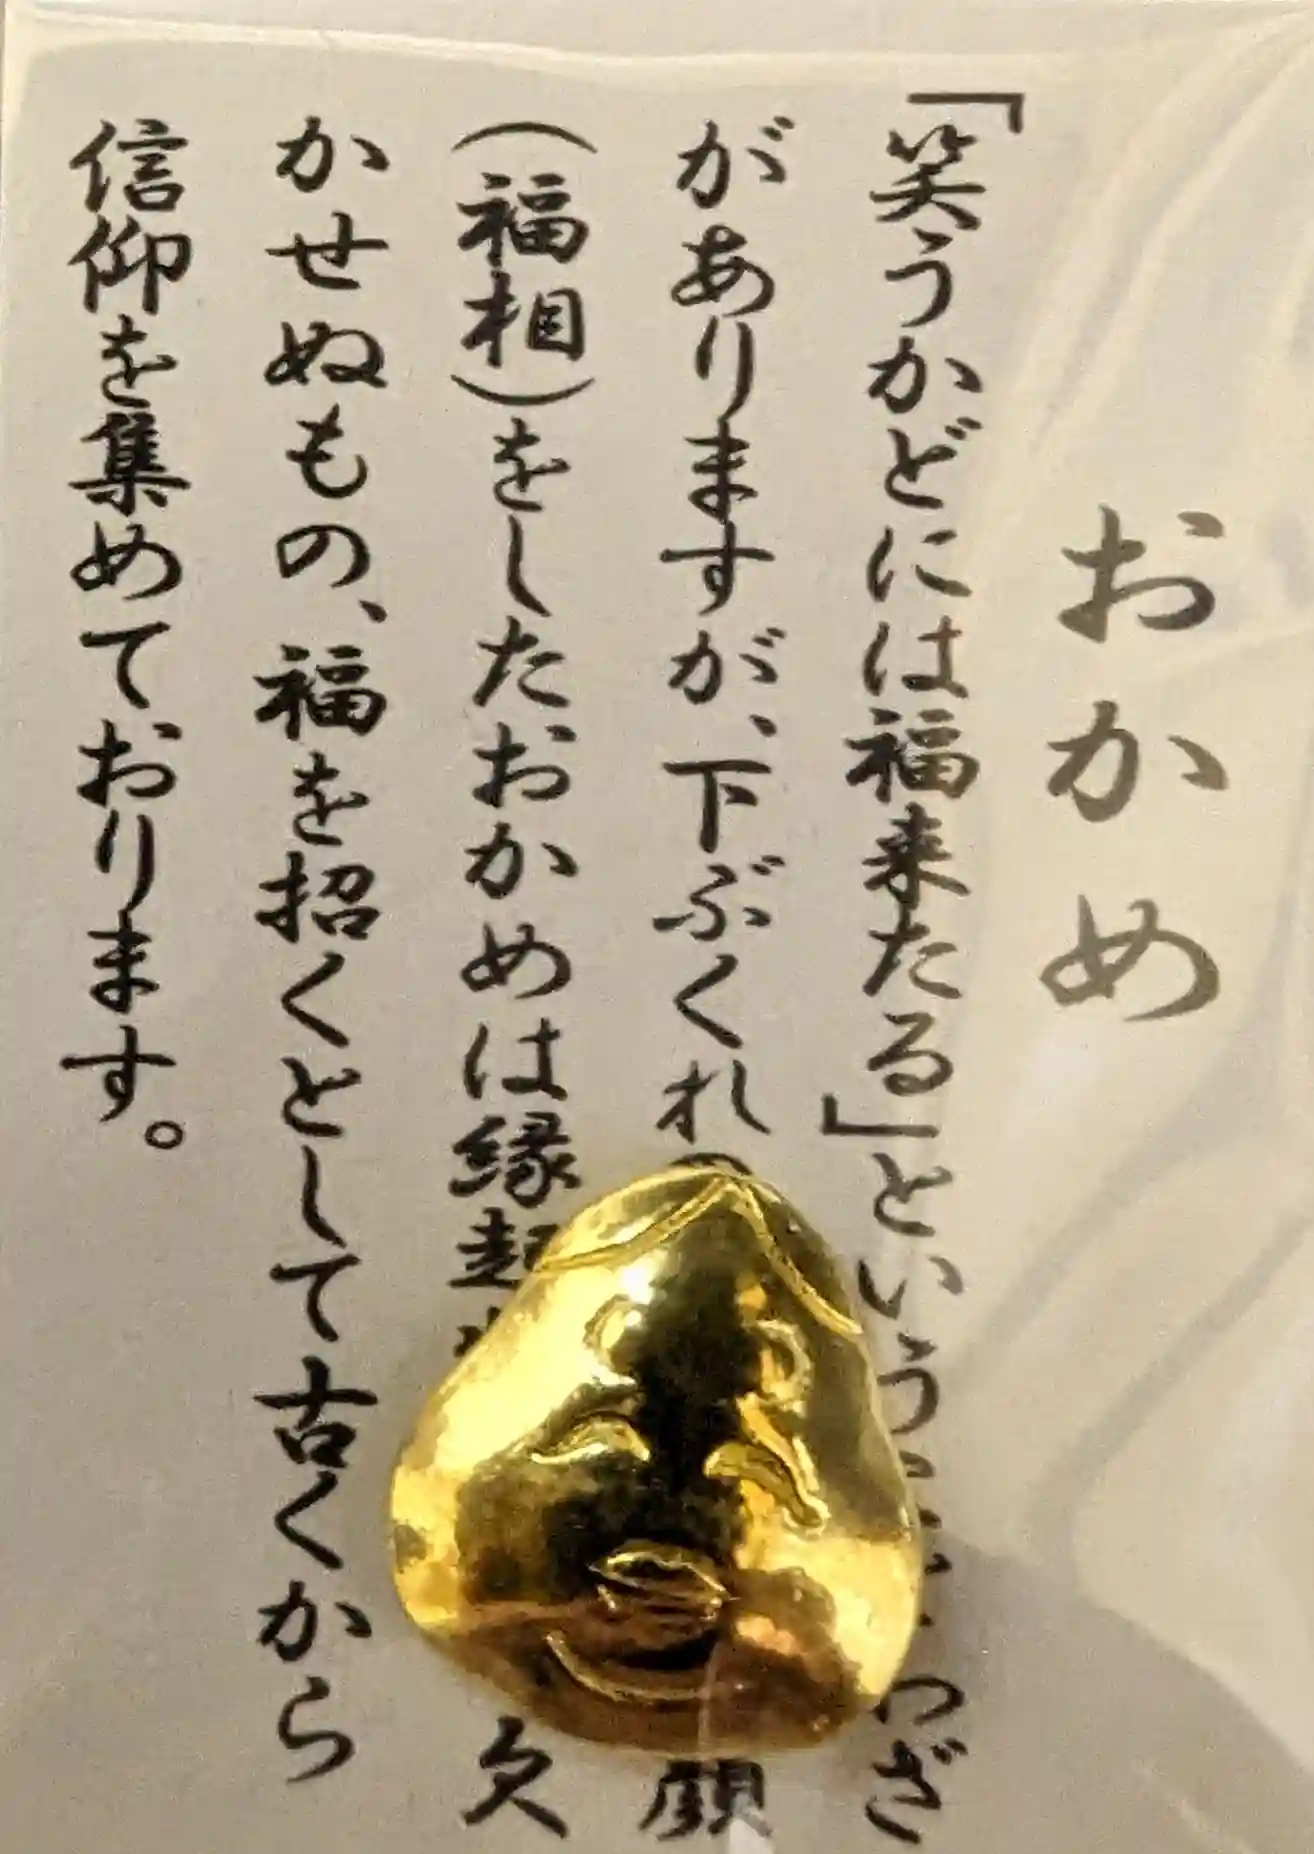 おかめ
「笑うかどには福来たる」という わざ
がありますが、下ぶくれ 顔
(福相)をしたおかめは縁起 欠
かせぬもの、福を招くとして古くから
信仰を集めております。